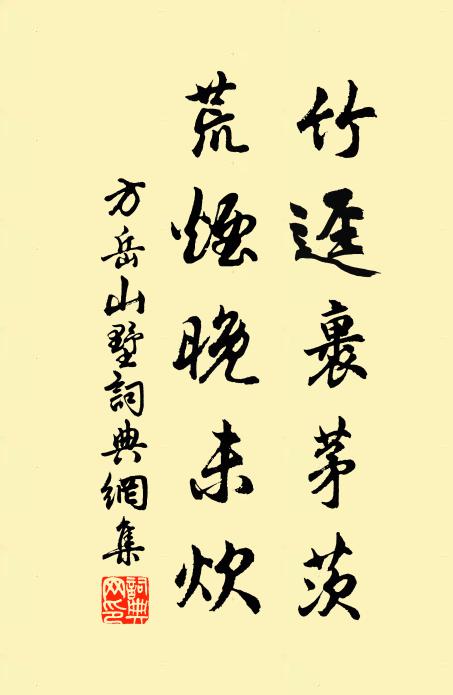 竹逕裹茅茨
荒煙晚未炊
方岳山墅詞典網集
詞典网印